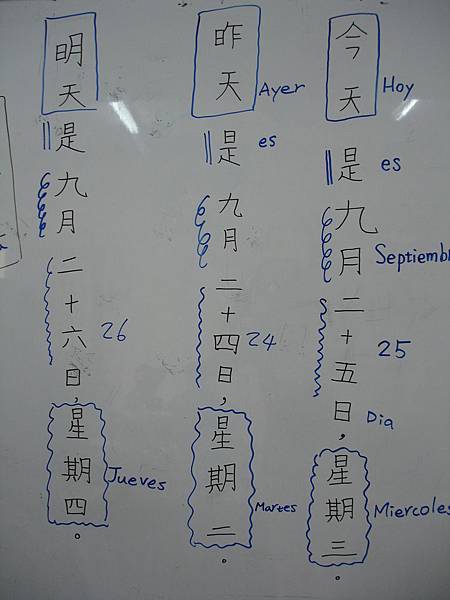 今天是九月二十五日，星期三。
Hoy
es
Septiembr
25
Dia
Miercoles
昨天是九月二十四日，星期二。
Ayer
es
24
Martes
明天是九月二十六日，星期四。
26
Jueves